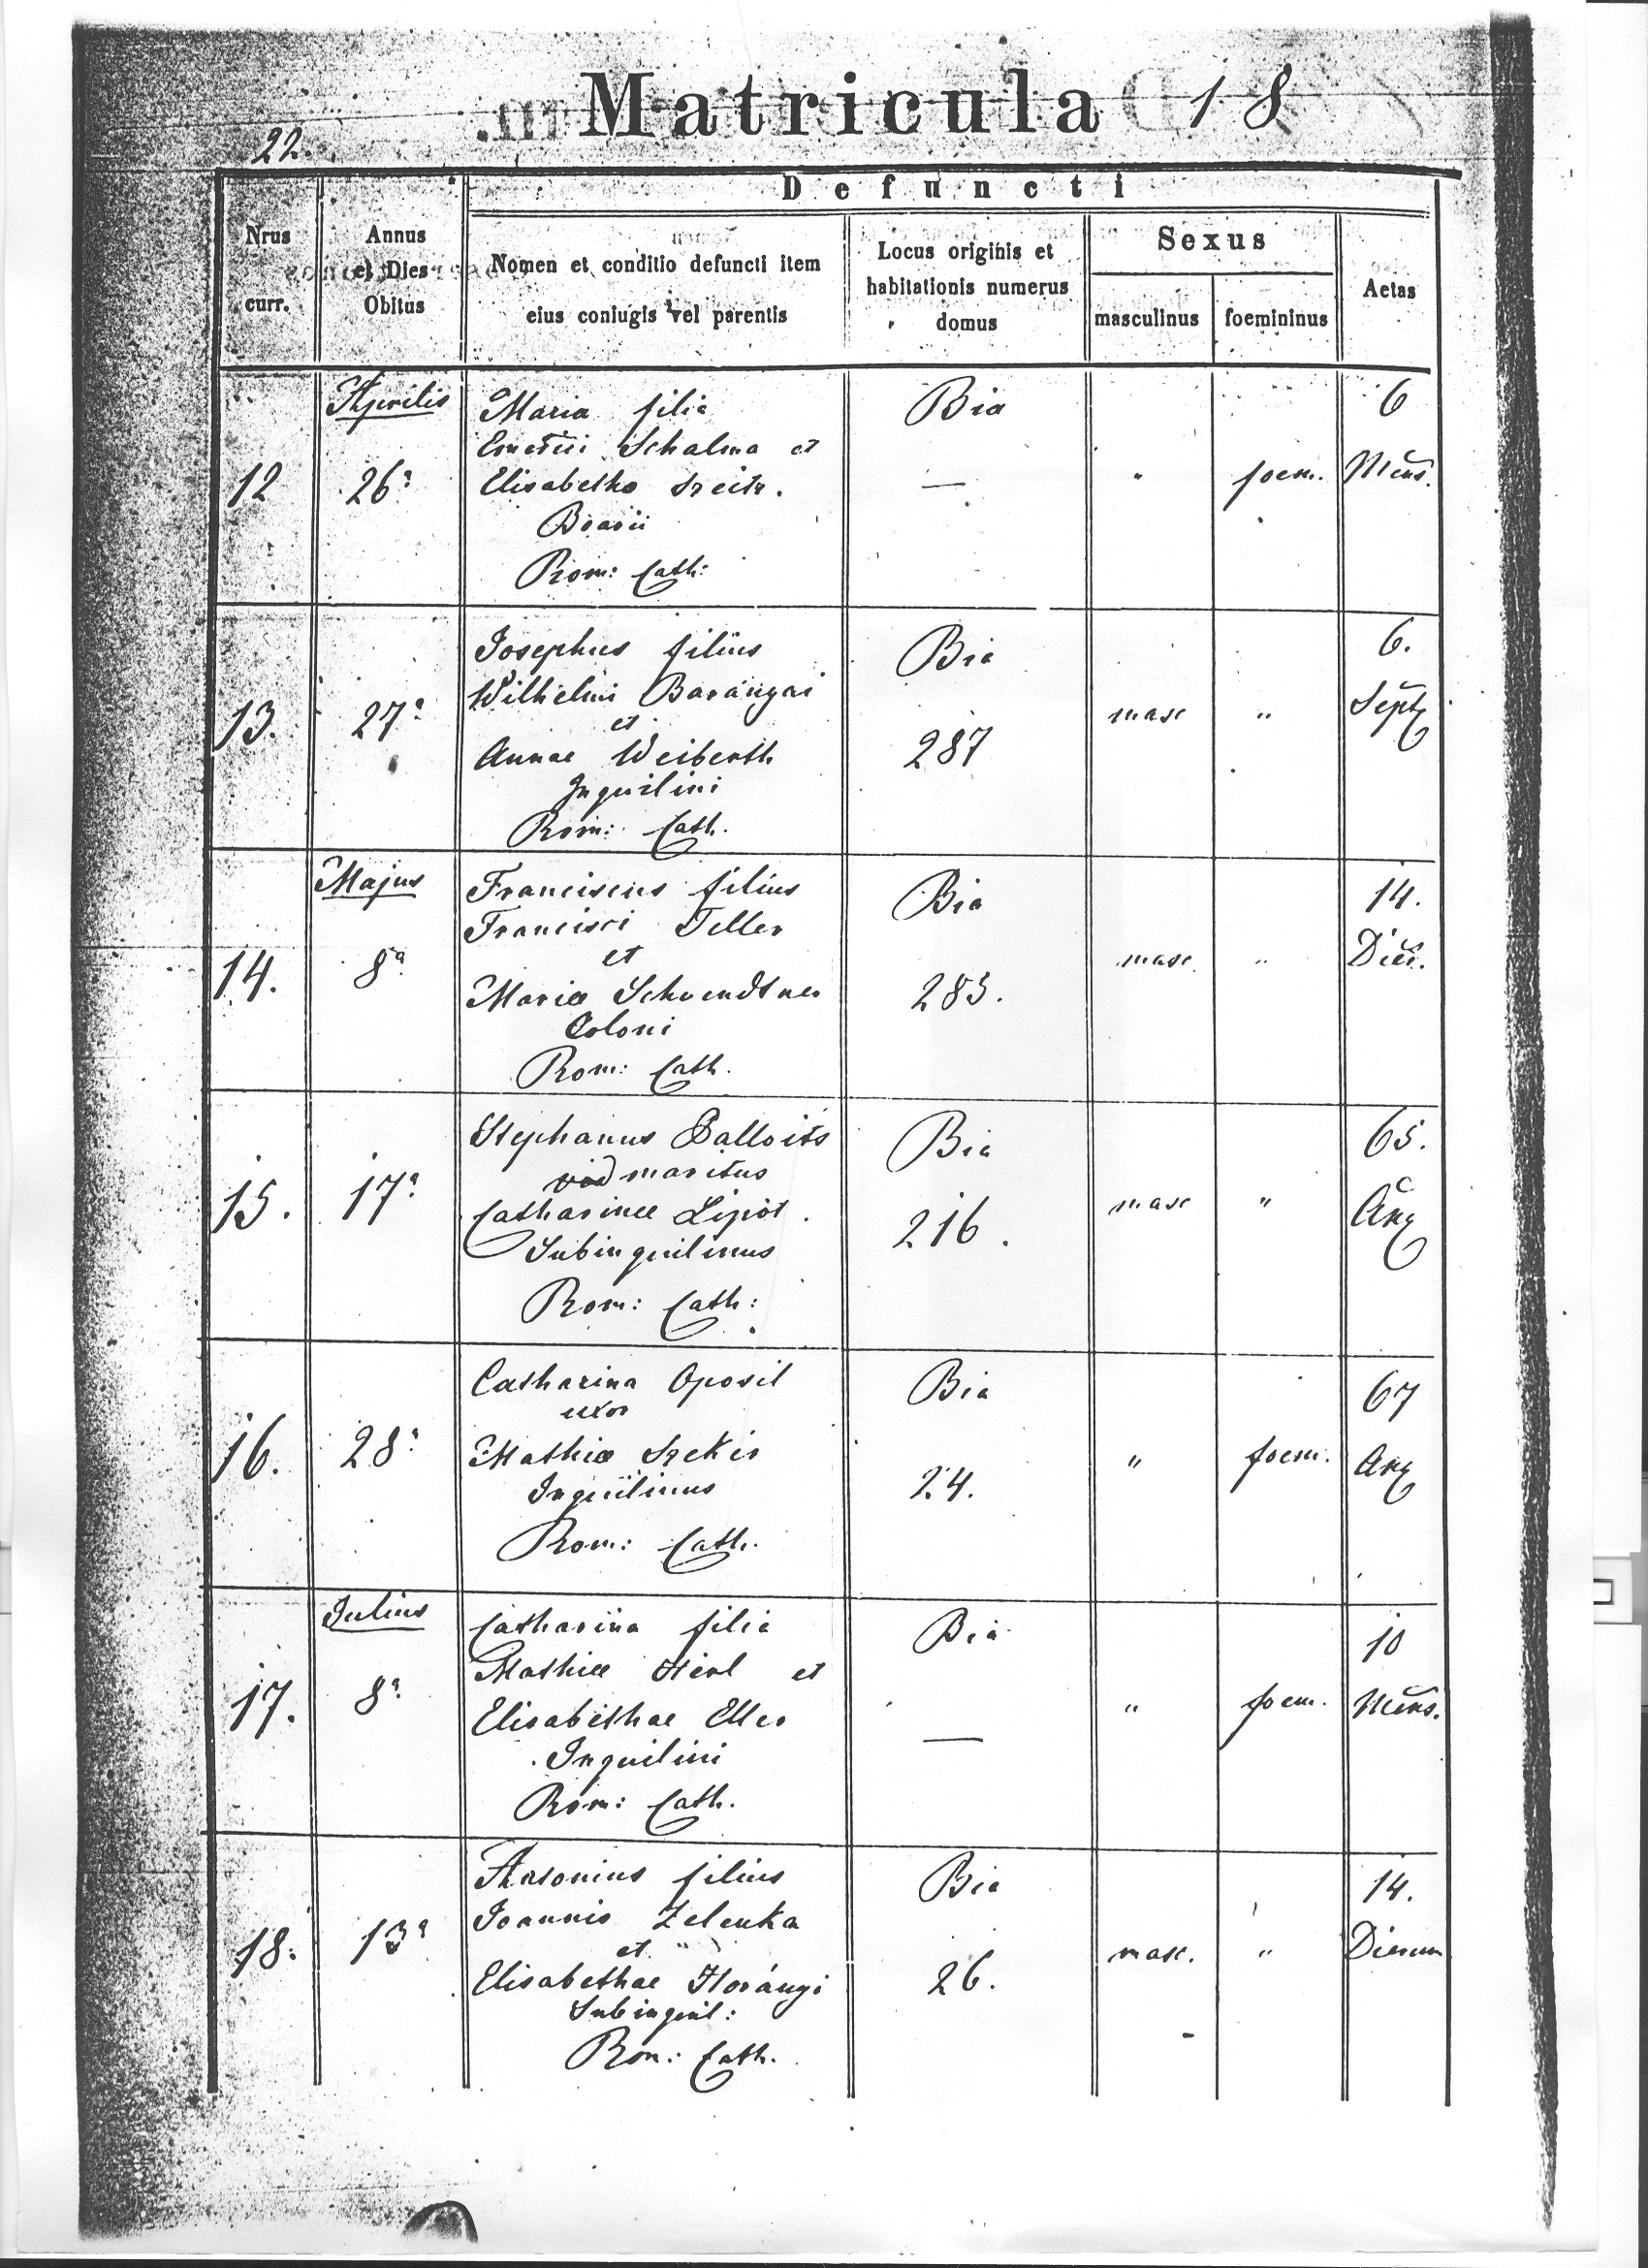 Matricula 18
22.
Defuncti
Nrus curr.
Annus et Dies Obitus
Nomen et conditio defuncti item
eius coniugis vel parentis
Locus originis et
habitationis numerus
domus
Sexus
masculinus
foemininus
Aetas
12
Aprilis
26a
Maria filia
Emerici Schalma et
Elisabetha
Rom: Cath:
Bia
—
"
foem.
6
Mens.
13.
27a
Josephus filius
Wilhelmi Barányai
et
Annae Weiberth
Inquilini
Rom: Cath.
Bia
287
masc
"
6.
Sept
14.
Majus
8a
Franciscus filius
Francisci Teller
et
Mariae Schvendtner
Coloni
Rom: Cath.
Bia
283.
masc.
"
14.
Dier.
15.
17a
Stephanus
maritus
Catharinae Lipót.
Subinquilinus
Rom: Cath:
Bia
216.
masc
"
65.
Ann
16.
28a
Catharina Oposil
uxor
Mathiae Szekir
Inquilinus
Rom: Cath.
Bia
24.
"
foem.
67
Ann
17.
Julius
8a
Catharina filia
Mathiae et
Elisabethae Eller
Inquilini
Rom: Cath.
Bia
—
"
foem.
10
Mens.
18.
13a
Antonius filius
Joannis Zelenka
et
Elisabethae Horányi
Subinquil:
Rom: Cath.
Bia
26.
masc.
"
14.
Dierum